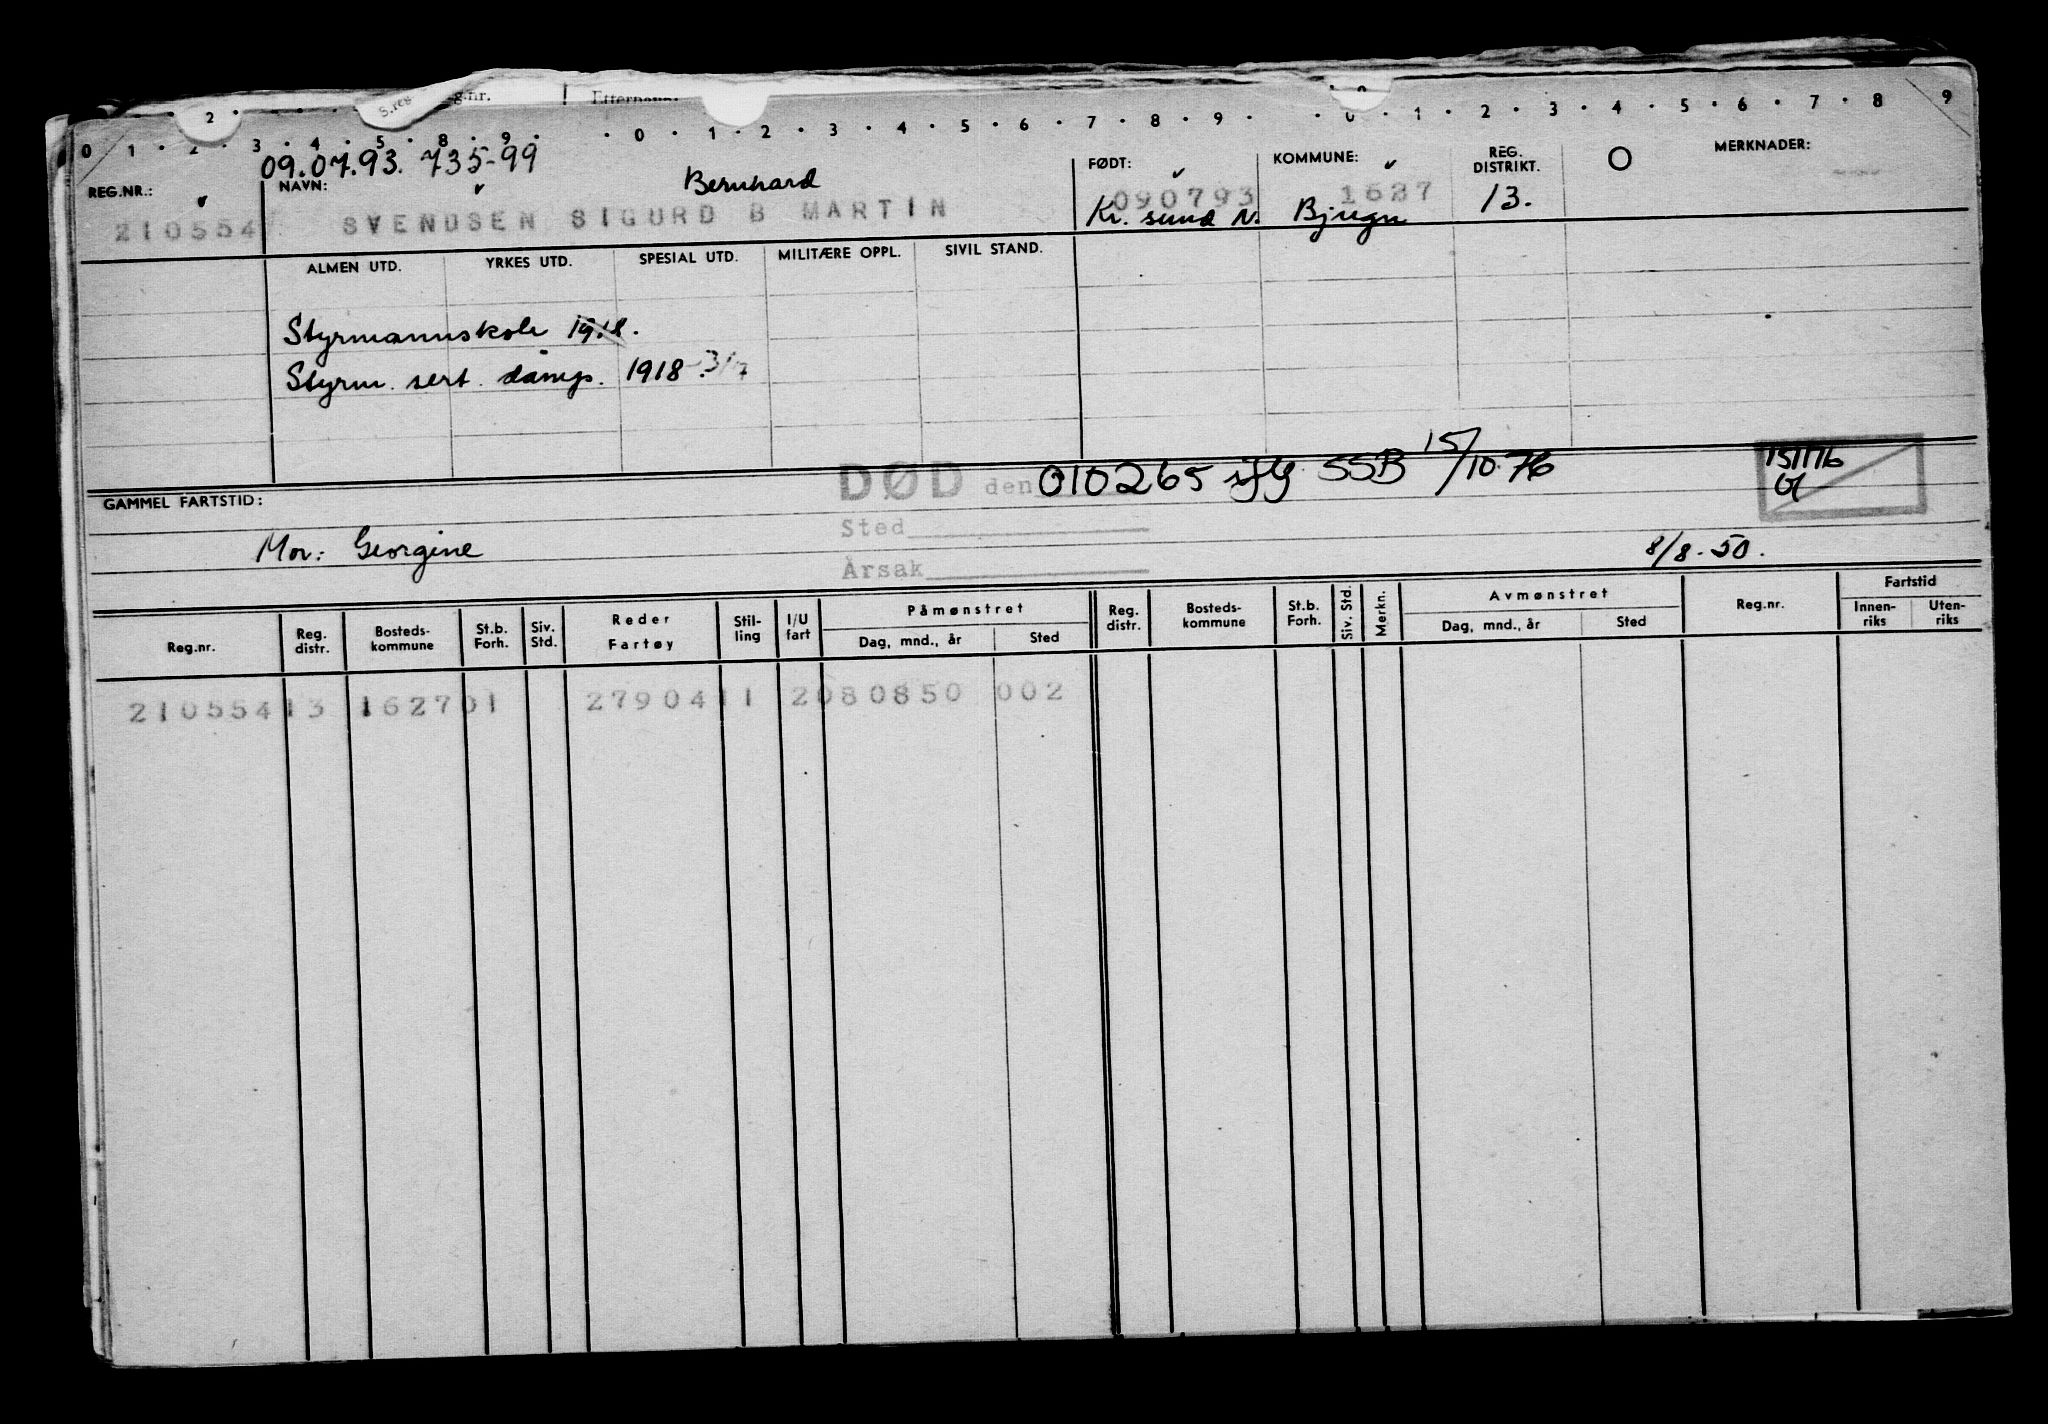 S.reg g.nr. Etternavn:
2
0 1 2 3 4 5 8 9 0 1 2 3 4 5 6 7 8 9 0 1 2 3 4 5 6 7 8 9
09.07.93. 735-99
REG.NR.: NAVN: Bernhard FØDT: KOMMUNE: REG. DISTRIKT. MERKNADER:
210554 SVENDSEN SIGURD B MARTIN 090793 1627 13.
Kr. sund N. Bjugn
ALMEN UTD. YRKES UTD. SPESIAL UTD. MILITÆRE OPPL. SIVIL STAND.
Styrmannskole 1918.
Styrm. sert. damps. 1918 3/7
DØD den 010265 SSB 15/10-76
GAMMEL FARTSTID:
Sted
Mor: Georgine 8/8-50.
Årsak
Reg.nr. Reg. distr. Bosteds-kommune St.b. Forh. Siv. Std. Reder Fartøy Stil-ling I/U fart Påmønstret Dag, mnd., år Sted Reg. distr. Bosteds-kommune St.b. Forh. Siv. Std. Merkn. Avmønstret Dag, mnd., år Sted Reg.nr. Fartstid Innen-riks Uten-riks
210554 13 1627 01 27904 11 2 080850 002